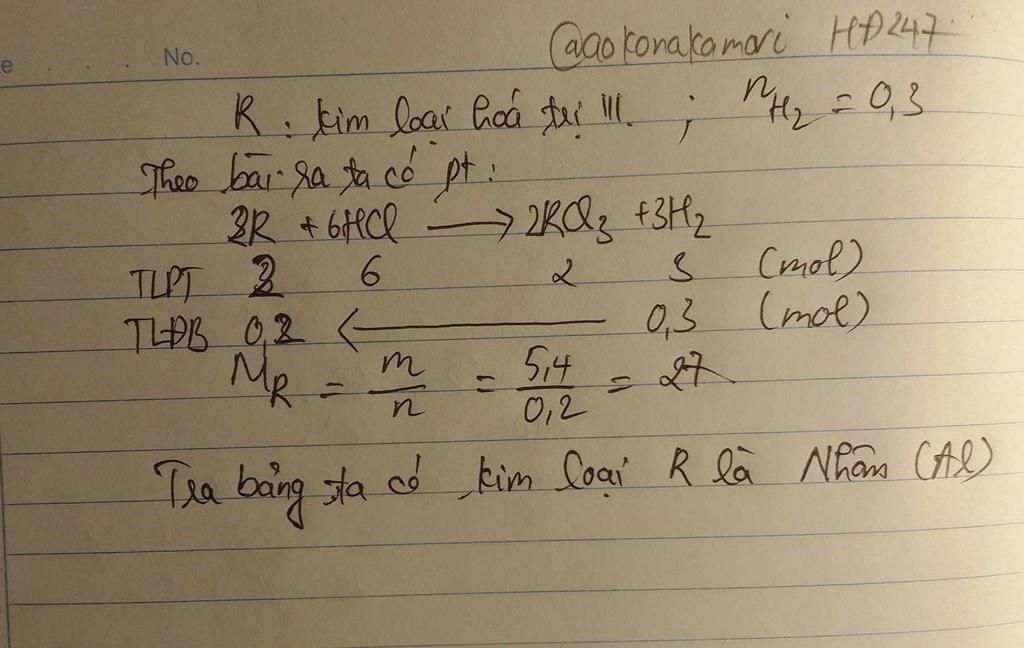 e . . . . No.
@aokonakamori HĐ247
R : kim loại hoá trị III. ; nH2 = 0,3
Theo bài ra ta có pt :
2R + 6HCl → 2RCl3 + 3H2
TLPT 2 6 2 3 (mol)
TLĐB 0,2 ← 0,3 (mol)
MR = m/n = 5,4/0,2 = 27
Tra bảng ta có kim loại R là Nhôm (Al)